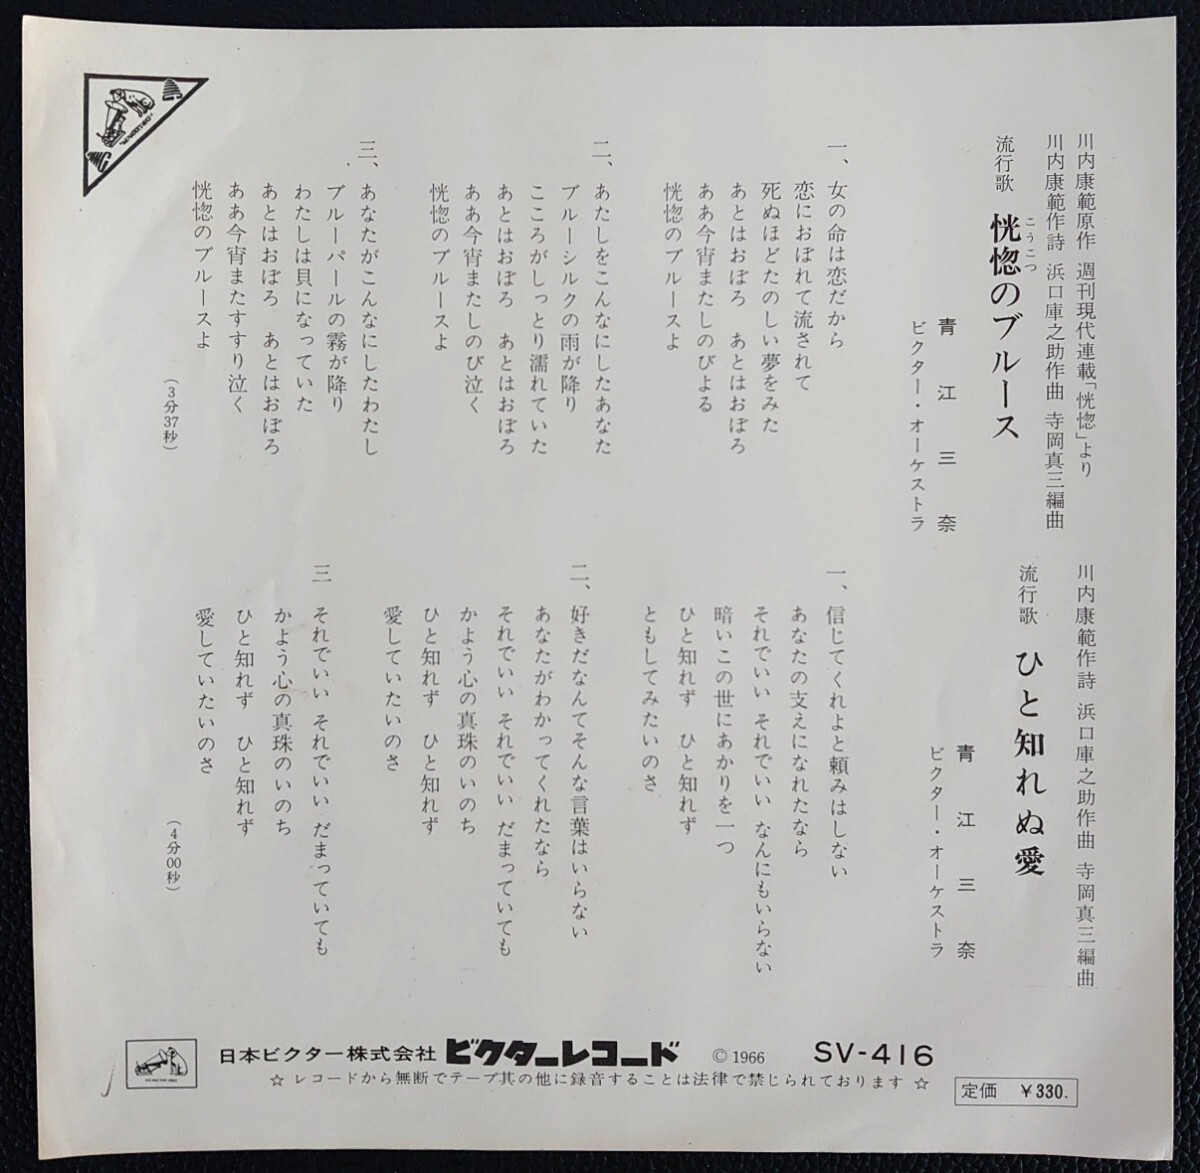 川内康範原作 週刊現代連載「恍惚」より
川内康範作詩 浜口庫之助作曲 寺岡真三編曲
流行歌 恍惚のブルース
こうこつ
青江三奈
ビクター・オーケストラ
一、女の命は恋だから
恋におぼれて流されて
死ぬほどたのしい夢をみた
あとはおぼろ あとはおぼろ
ああ今宵またしのびよる
恍惚のブルースよ
二、あたしをこんなにしたあなた
ブルーシルクの雨が降り
こころがしっとり濡れていた
あとはおぼろ あとはおぼろ
ああ今宵またしのび泣く
恍惚のブルースよ
三、あなたがこんなにしたわたし
ブルーパールの霧が降り
わたしは貝になっていた
あとはおぼろ あとはおぼろ
ああ今宵またすすり泣く
恍惚のブルースよ
(3分37秒)
川内康範作詩 浜口庫之助作曲 寺岡真三編曲
流行歌 ひと知れぬ愛
青江三奈
ビクター・オーケストラ
一、信じてくれよと頼みはしない
あなたの支えになれたなら
それでいい それでいい なんにもいらない
暗いこの世にあかりを一つ
ひと知れず ひと知れず
ともしてみたいのさ
二、好きだなんてそんな言葉はいらない
あなたがわかってくれたなら
それでいい それでいい だまっていても
かよう心の真珠のいのち
ひと知れず ひと知れず
愛していたいのさ
三 それでいい それでいい だまっていても
かよう心の真珠のいのち
ひと知れず ひと知れず
愛していたいのさ
(4分00秒)
日本ビクター株式会社 ビクターレコード © 1966 SV-416
☆ レコードから無断でテープ其の他に録音することは法律で禁じられております ☆
定価 ¥330.